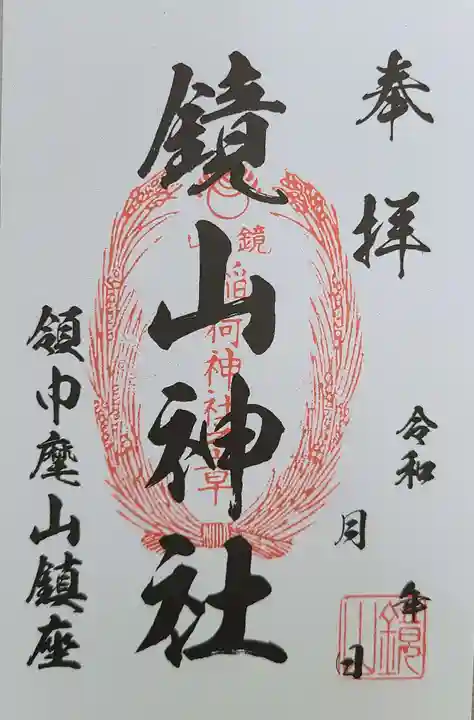 奉拝
令和 年
月 日
鏡山神社
鏡山
稲荷神社
領巾麾山鎮座
鏡山